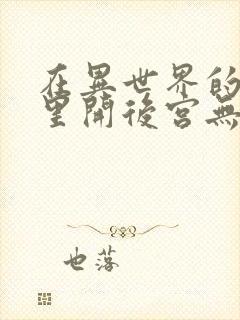 在異世界的
里開後宮無
也落